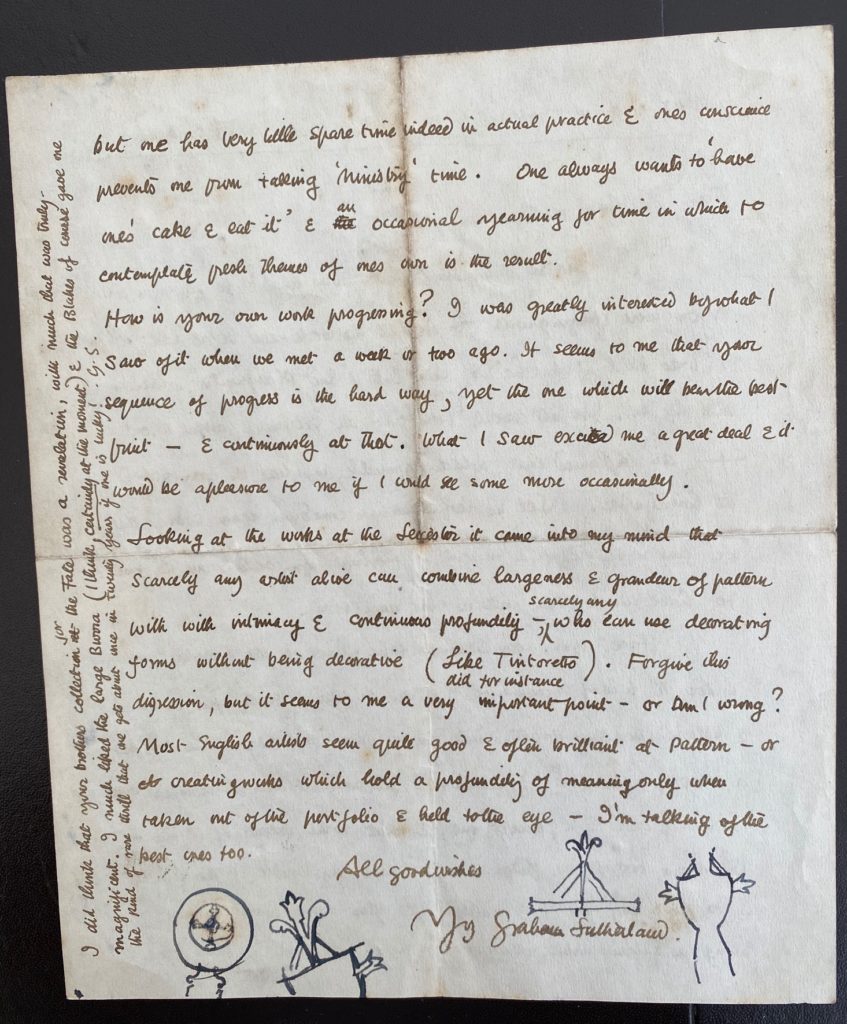 but one has very little spare time indeed in actual practice & ones conscience
prevents one from taking 'Ministry' time. One always wants to 'have
ones cake & eat it' & an occasional yearning for time in which to
contemplate fresh themes of ones own is the result.
How is your own work progressing? I was greatly interested by what I
saw of it when we met a week or two ago. It seems to me that your
sequence of progress is the hard way, yet the one which will bear the best
fruit — & continuously at that. What I saw excited me a great deal & it
would be a pleasure to me if I could see some more occasionally.
Looking at the works at the Leicester it came into my mind that
scarcely any artist alive can combine largeness & grandeur of pattern
with with intimacy & continuous profundity —, scarcely any who can use decorating
forms without being decorative (Like Tintoretto did for instance). Forgive this
digression, but it seems to me a very important point — or am I wrong?
Most English artists seem quite good & often brilliant at Pattern — or
creating works which hold a profundity of meaning only when
taken out of the portfolio & held to the eye — I'm talking of the
best ones too.
All good wishes
Yrs Graham Sutherland.
I did think that your brothers collection for the Tate was a revelation, with much that was truly
magnificent. I much liked the large Burra (I think, certainly at the moment) & the Blakes of course gave me
the kind of rare thrill that one gets about once in twenty years if one is lucky! G.S.